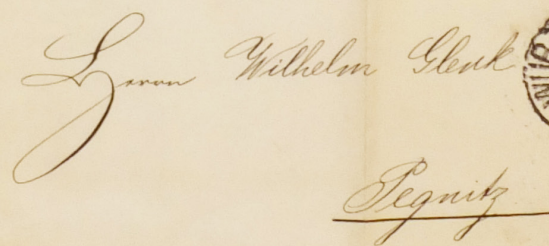 Herrn Wilhelm Glenk
Pegnitz
WÜR